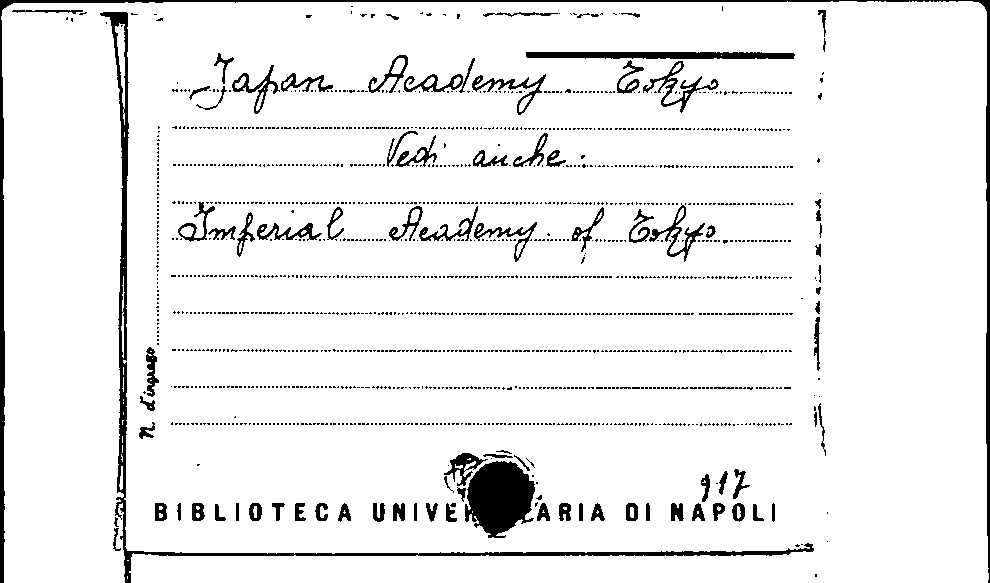 Japan Academy. Tokyo.
Vedi anche:
Imperial Academy of Tokyo.
N. d'ingresso
917
BIBLIOTECA DI NAPOLI